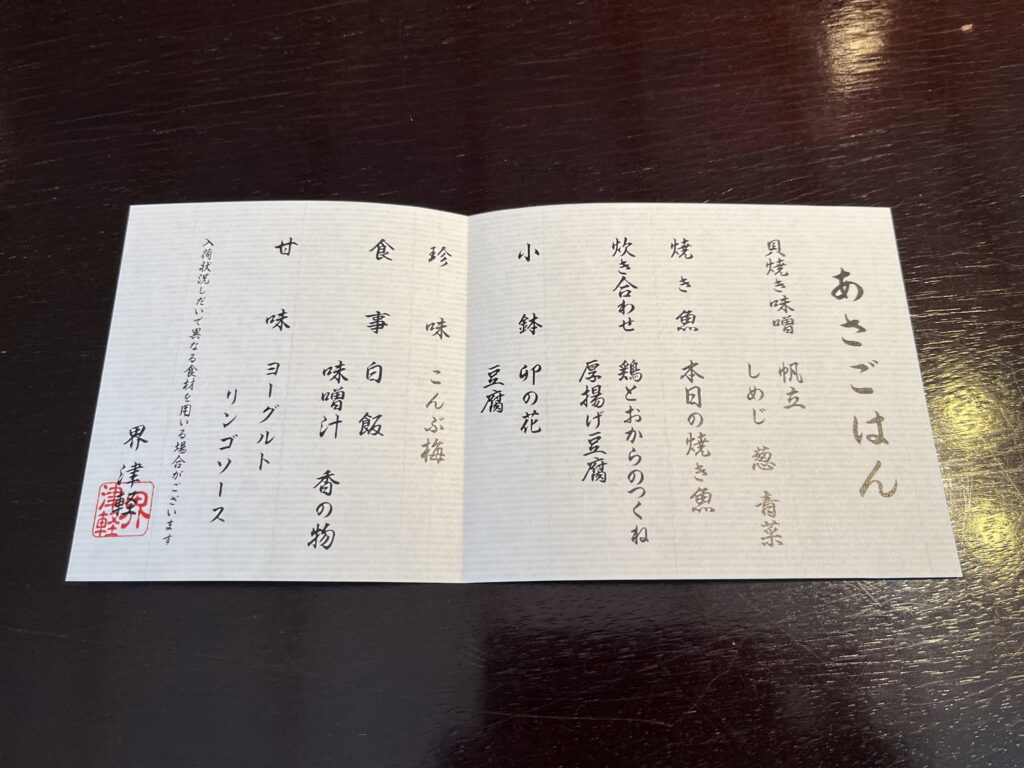 あさごはん
貝焼き味噌 帆立
しめじ 葱 青菜
焼き魚 本日の焼き魚
炊き合わせ 鶏とおからのつくね
厚揚げ豆腐
小鉢 卯の花
豆腐
珍味 こんぶ梅
食事 白飯
味噌汁 香の物
甘味 ヨーグルト
リンゴソース
入荷状況しだいで異なる食材を用いる場合がございます
界 津軽
界津軽